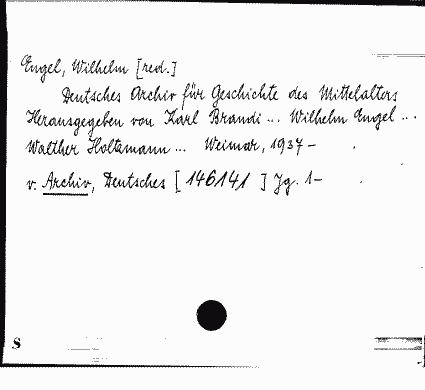 Engel, Wilhelm [red.]
Deutsches Archiv für Geschichte des Mittelalters
Herausgegeben von Karl Brandi ... Wilhelm Engel ...
Walther Holtzmann ... Weimar, 1937 –
v. Archiv, Deutsches [ 146141 ] Jg. 1–
S